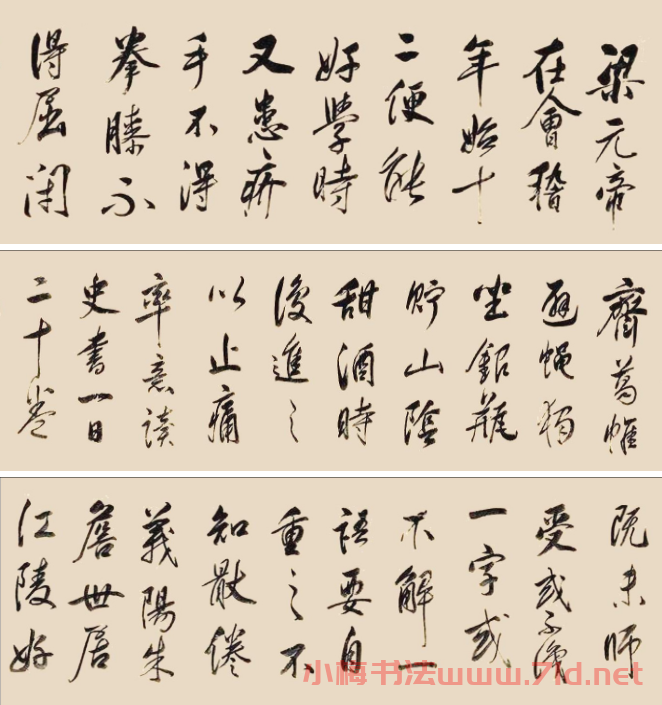 梁元帝
在會稽
年始十
二便能
好學時
又患疥
手不得
拳膝不
得屈閑
齋葛帷
避蝇獨
坐銀瓶
貯山陰
甜酒時
復進之
以止痛
率意讀
史書一日
二十卷
既未師
受或不識
一字或
不解一
語要自
重之不
知厭倦
義陽朱
詹世居
江陵好
小梅书法www.71d.net